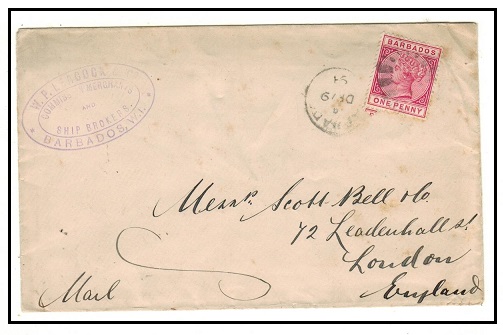 W. P. LEACOCK
COMMISSION MERCHANTS
AND
SHIP BROKERS.
BARBADOS, W.I.
BARBADOS
ONE PENNY
BARBADOS
A
DE 19
91
Messrs. Scott Bell & Co
72 Leadenhall St
London
England
Mail